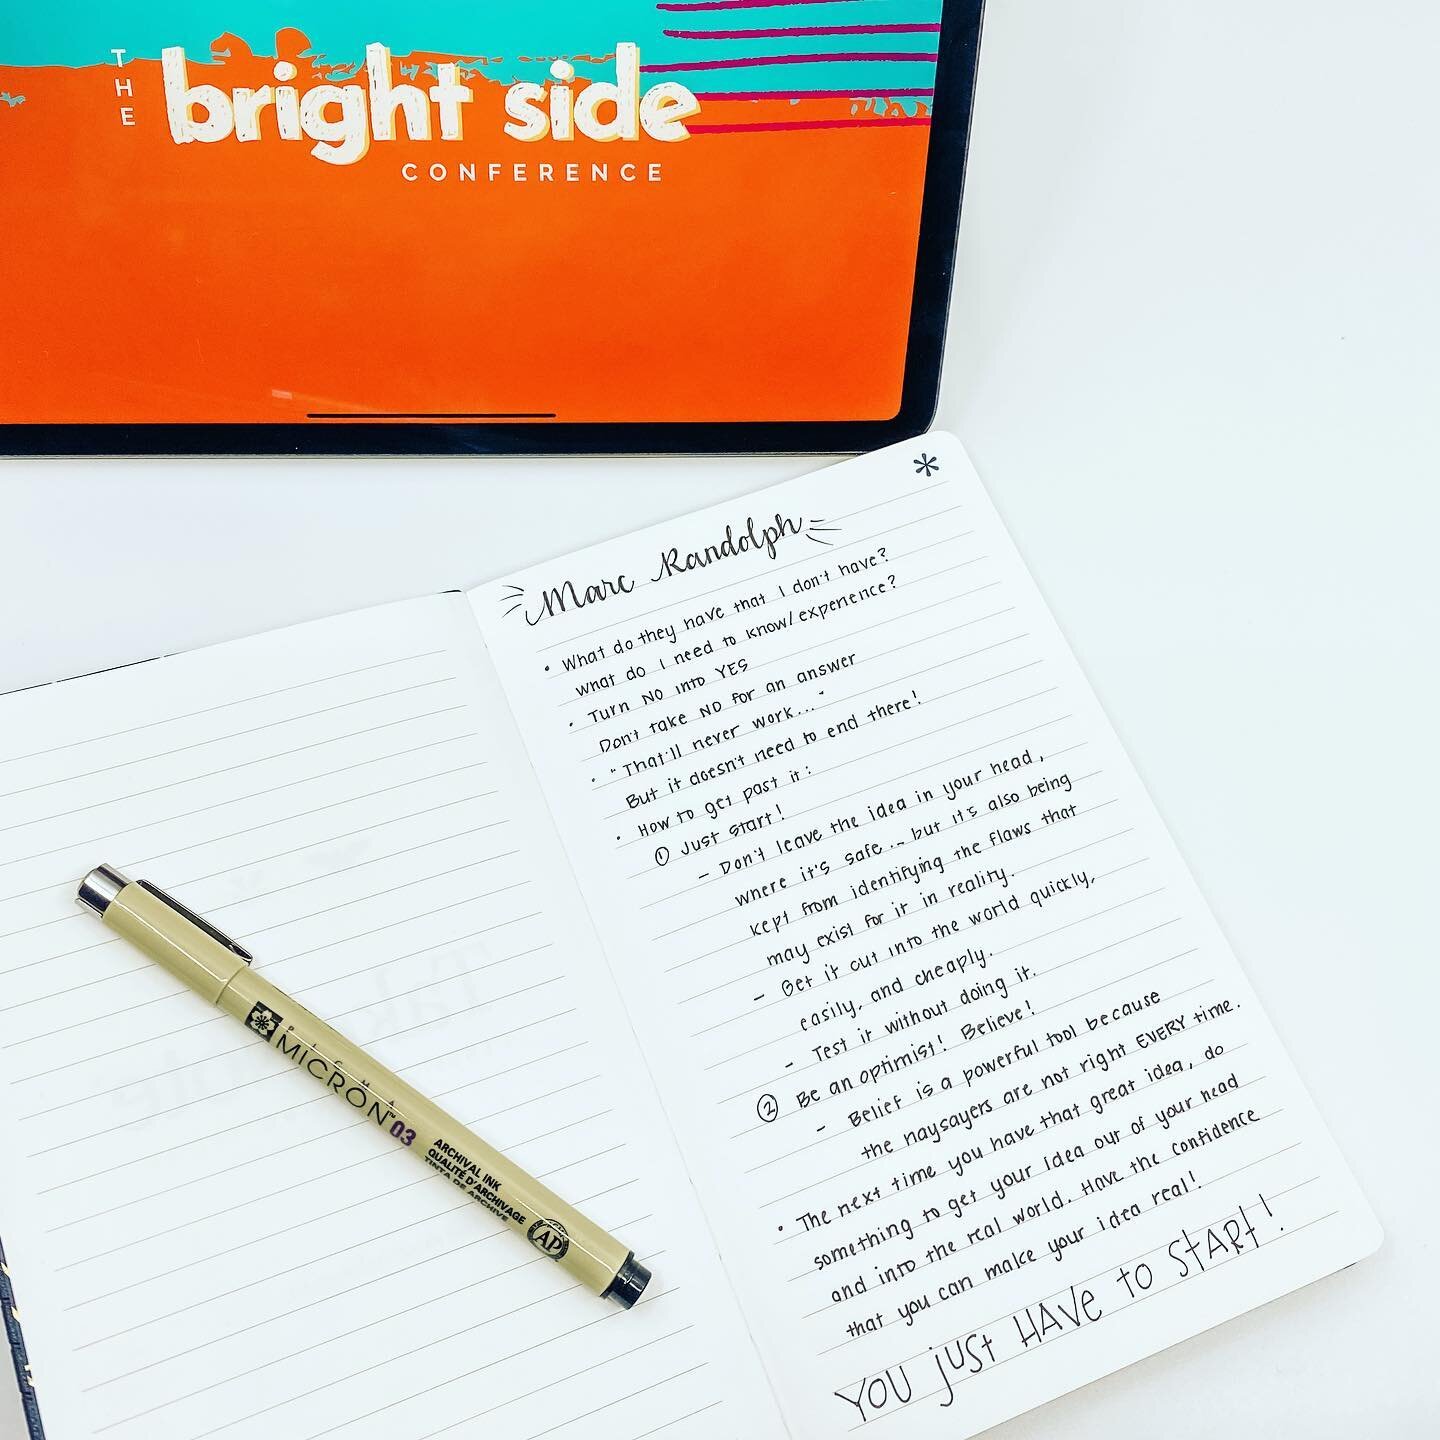 THE
bright side
CONFERENCE
*
Marc Randolph
• What do they have that I don't have?
What do I need to know/experience?
• Turn NO into YES
Don't take NO for an answer
• "That'll never work..."
But it doesn't need to end there!
• How to get past it:
① Just start!
- Don't leave the idea in your head,
where it's safe... but it's also being
kept from identifying the flaws that
may exist for it in reality.
- Get it out into the world quickly,
easily, and cheaply.
- Test it without doing it.
② Be an optimist! Believe!
- Belief is a powerful tool because
the naysayers are not right EVERY time.
• The next time you have that great idea, do
something to get your idea out of your head
and into the real world. Have the confidence
that you can make your idea real!
YOU just HAVE to START!
PIGMA
MICRON™ 03
ARCHIVAL INK
QUALITÉ D'ARCHIVAGE
TINTA DE ARCHIVE
AP